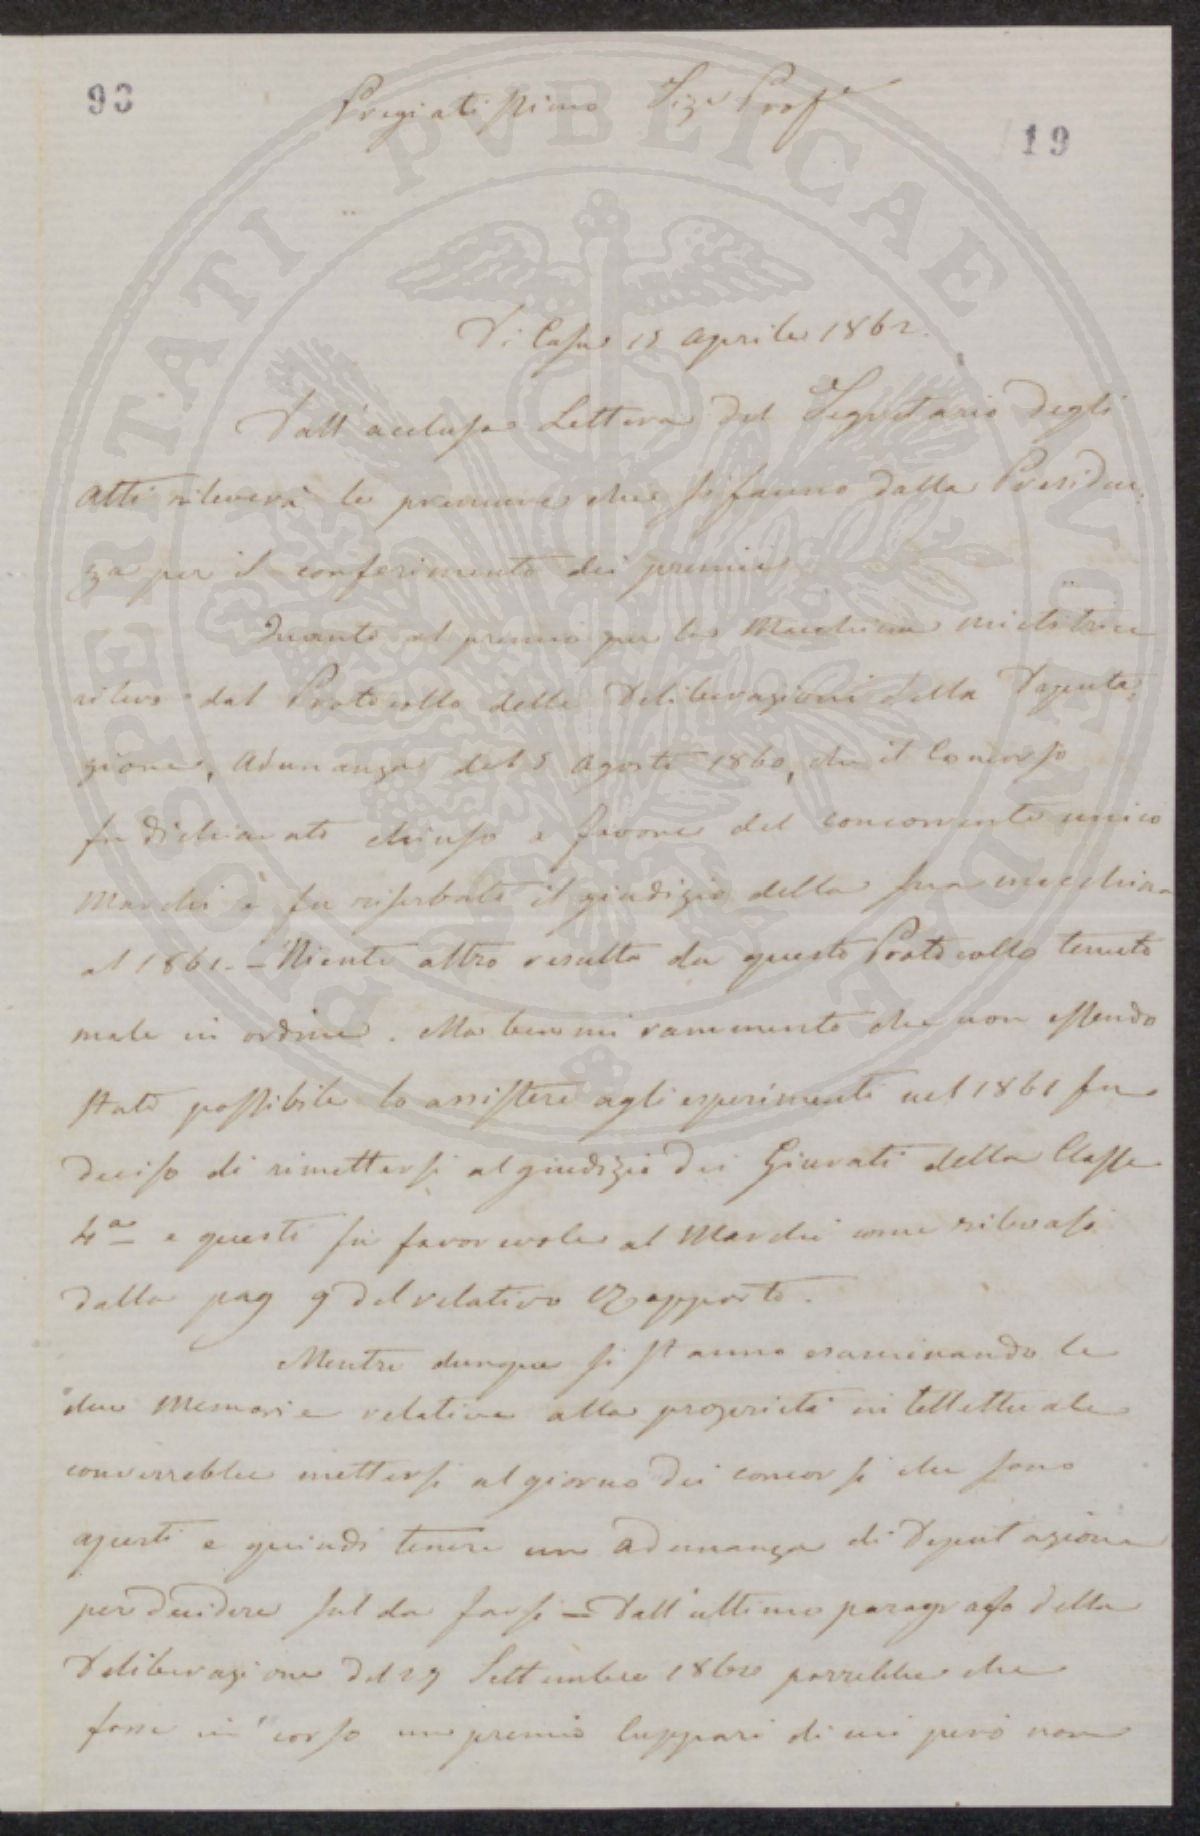 93
Pregiatissimo Sigr Profe
19
Di Casa 15 Aprile 1862.
Dall'acclusa Lettera del Segretario degli
Atti rileverà le premure che si fanno dalla Presiden-
za per il conferimento dei premi
Quanto al premio per la Macchina mietitrice
rilevo dal Protocollo delle Deliberazioni della Deputa-
zione, Adunanza del 5 Agosto 1860, che il Concorso
fu dichiarato chiuso a favore del concorrente unico
Marchi e fu riserbato il giudizio della sua macchina
al 1861. - Niente altro resulta da questo Protocollo tenuto
male in ordine. Ma bene mi rammento che non essendo
stato possibile lo assistere agli esperimenti nel 1861 fu
deciso di rimettersi al giudizio dei Giurati della Classe
4a e questo fu favorevole al Marchi come rilevasi
dalla pag 9 del relativo Rapporto.
Mentre dunque si stanno esaminando le
due Memorie relative alla proprietà intellettuale
converrebbe mettersi al giorno dei concorsi che sono
aperti e quindi tenere un Adunanza di Deputazione
per decidere sul da farsi - Dall'ultimo paragrafo della
Deliberazione del 29 Settembre 1860 parrebbe che
fosse in corso un premio Cuppari di cui però non